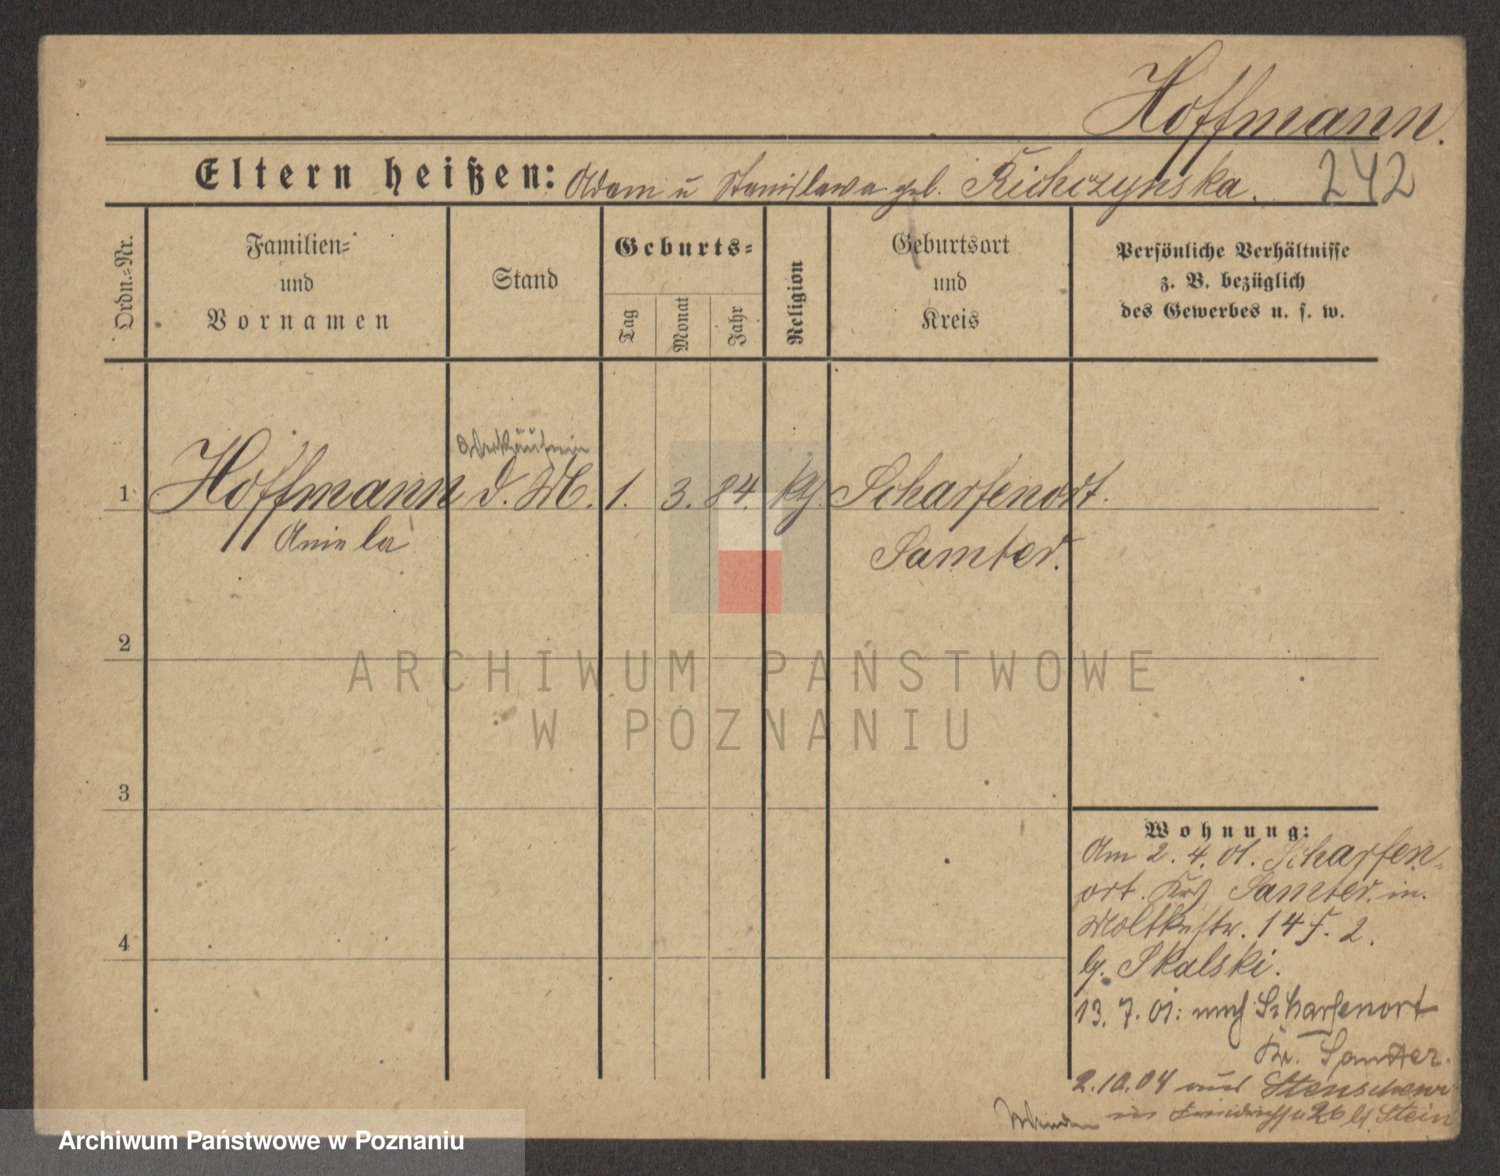 Hoffmann.
Eltern heißen: Adam u Stanislawa geb. Richczynska.
242
Ordn.=Nr.
Familien=
und
Vornamen
Stand
Geburts=
Tag
Monat
Jahr
Religion
Geburtsort
und
Kreis
Persönliche Verhältnisse
z. B. bezüglich
des Gewerbes u. s. w.
Verkäuferin
1 Hoffmann d. M. 1. 3. 84. kth. Scharfenort.
Aniela Samter.
2
ARCHIWUM PAŃSTWOWE
W POZNANIU
3
Wohnung:
Am 2. 4. 01. Scharfen-
ort. Krs Samter. in.
Moltkestr. 14 f. 2.
4
b/. Skalski.
13. 7. 01: nach Scharfenort
Kr. Samter.
2.10.04 aus Stenschewo
in 26 b/. Stein
Archiwum Państwowe w Poznaniu